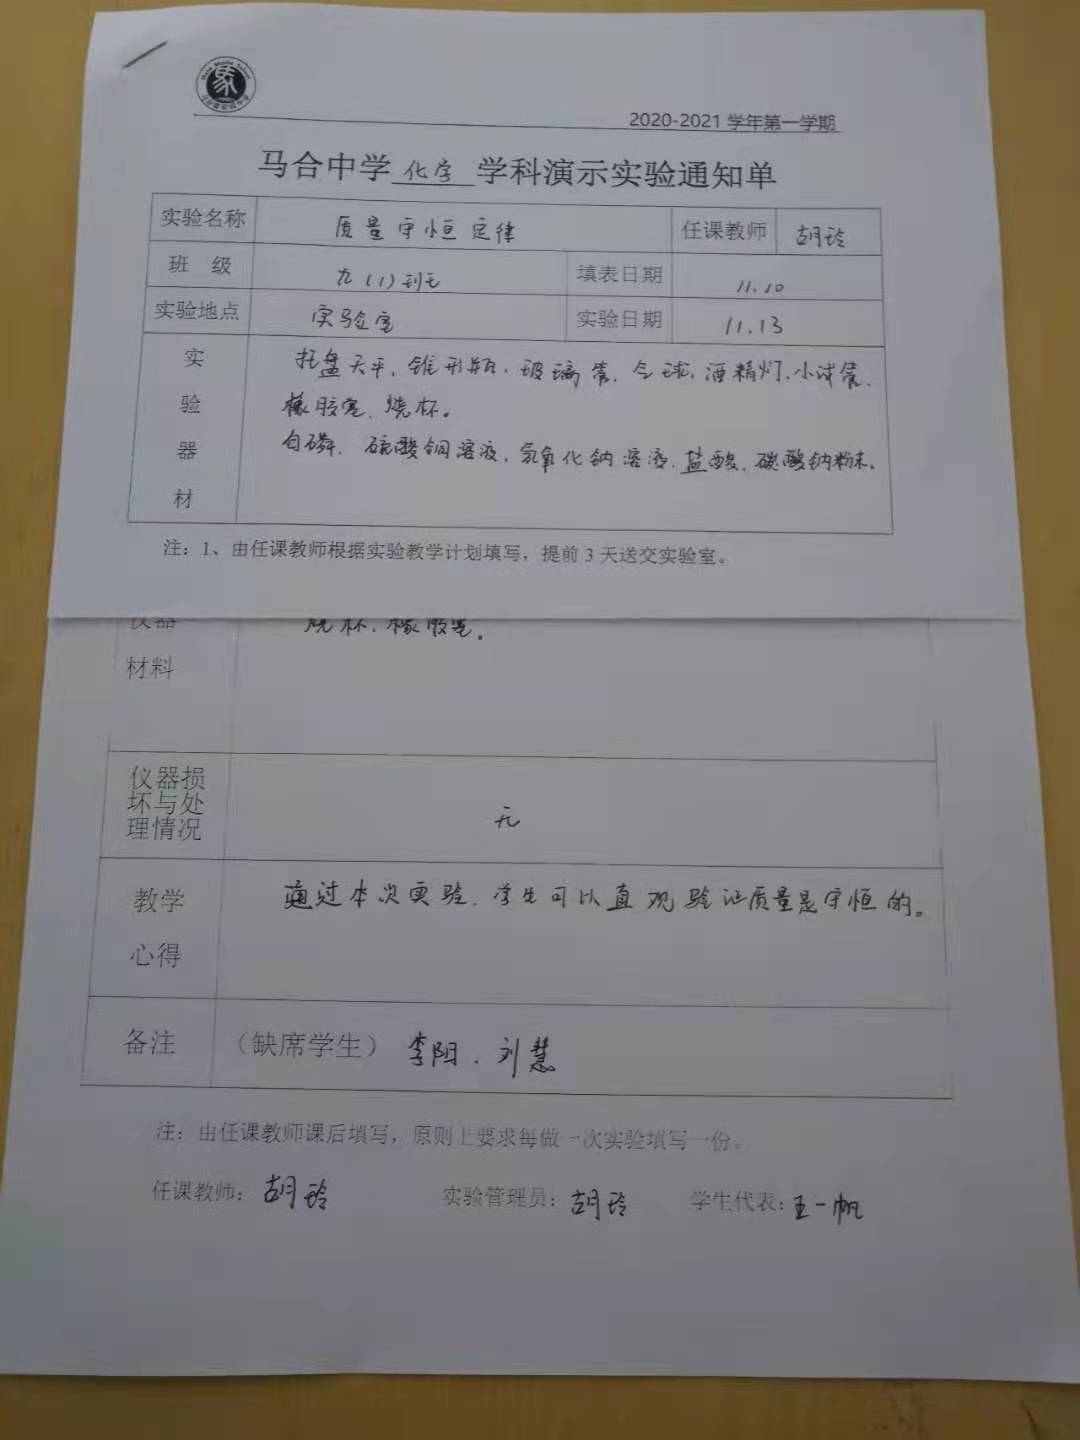 2020-2021 学年第一学期
马合中学 化学 学科演示实验通知单
实验名称 质量守恒定律 任课教师 胡玲
班 级 九(1) 填表日期 11.10
实验地点 实验室 实验日期 11.13
实验器材 托盘天平、锥形瓶、玻璃管、气球、酒精灯、小试管、
橡胶塞、烧杯。
白磷、硫酸铜溶液、氢氧化钠溶液、盐酸、碳酸钠粉末。
注：1、由任课教师根据实验教学计划填写，提前 3 天送交实验室。
仪器 烧杯、橡胶塞。
材料
仪器损
坏与处 无
理情况
教学 通过本次实验、学生可以直观验证质量是守恒的。
心得
备注 （缺席学生） 李阳、刘慧
注：由任课教师课后填写，原则上要求每做一次实验填写一份。
任课教师：胡玲 实验管理员：胡玲 学生代表：王一帆